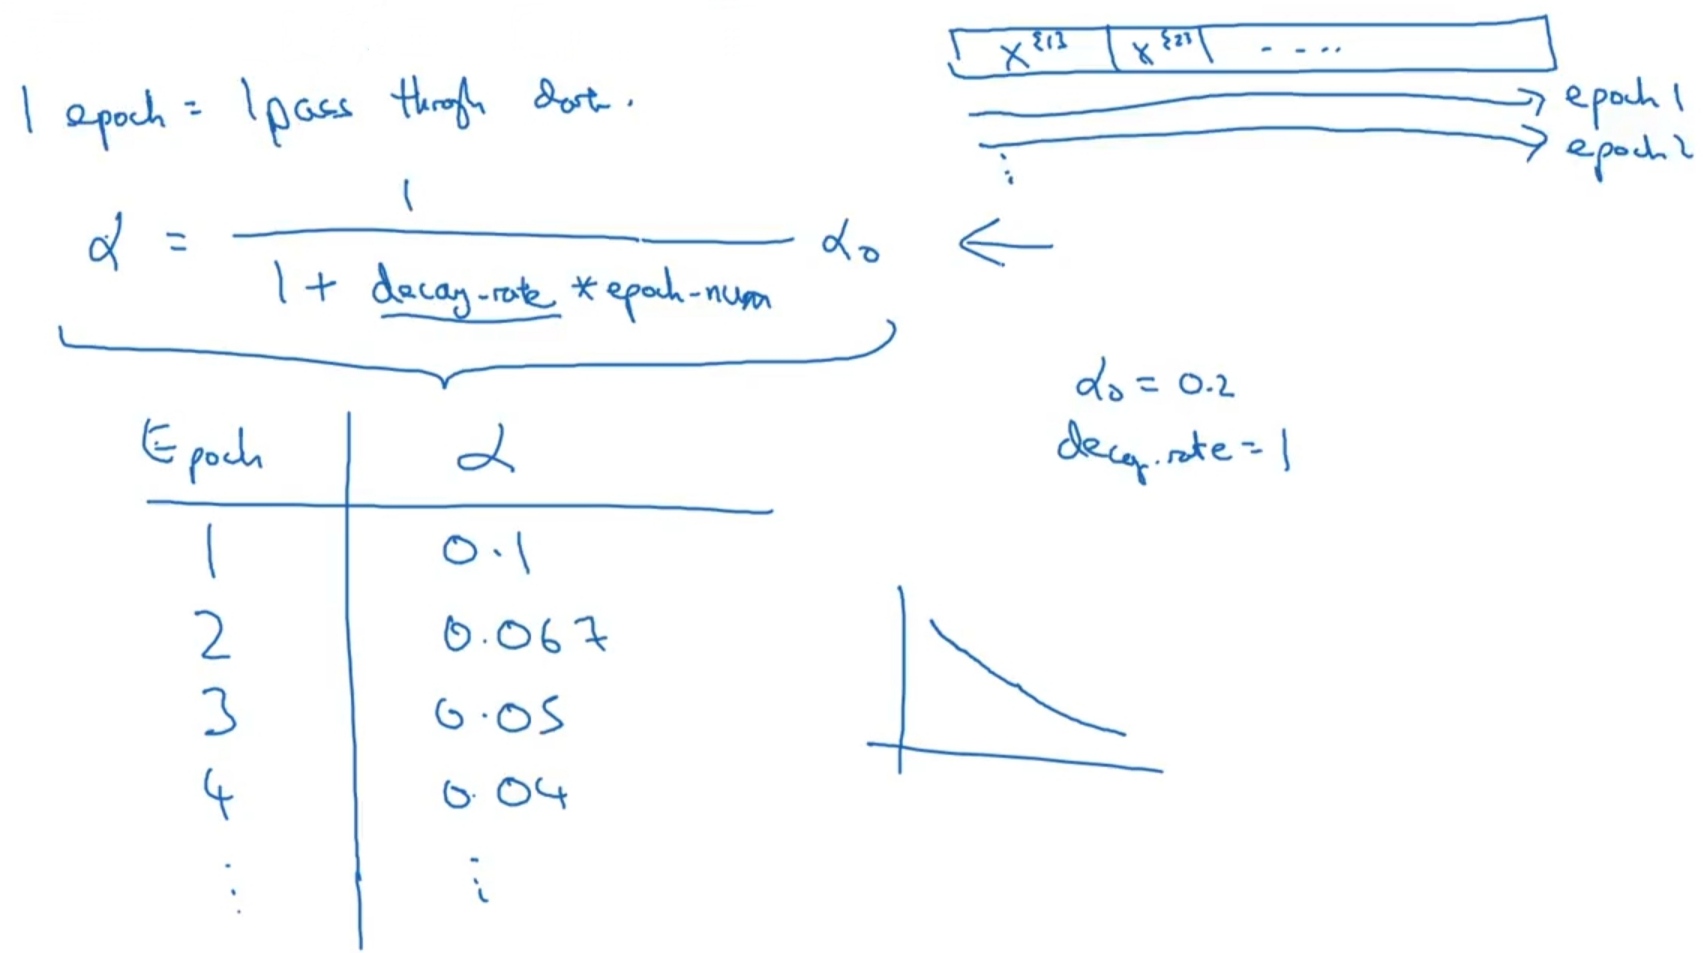 X^{1} X^{2} ....
1 epoch = 1 pass through data.
epoch 1
epoch 2
⋮
α = 1 / (1 + decay-rate * epoch-num) α₀ ←
α₀ = 0.2
decay-rate = 1
Epoch α
1 0.1
2 0.067
3 0.05
4 0.04
⋮ ⋮